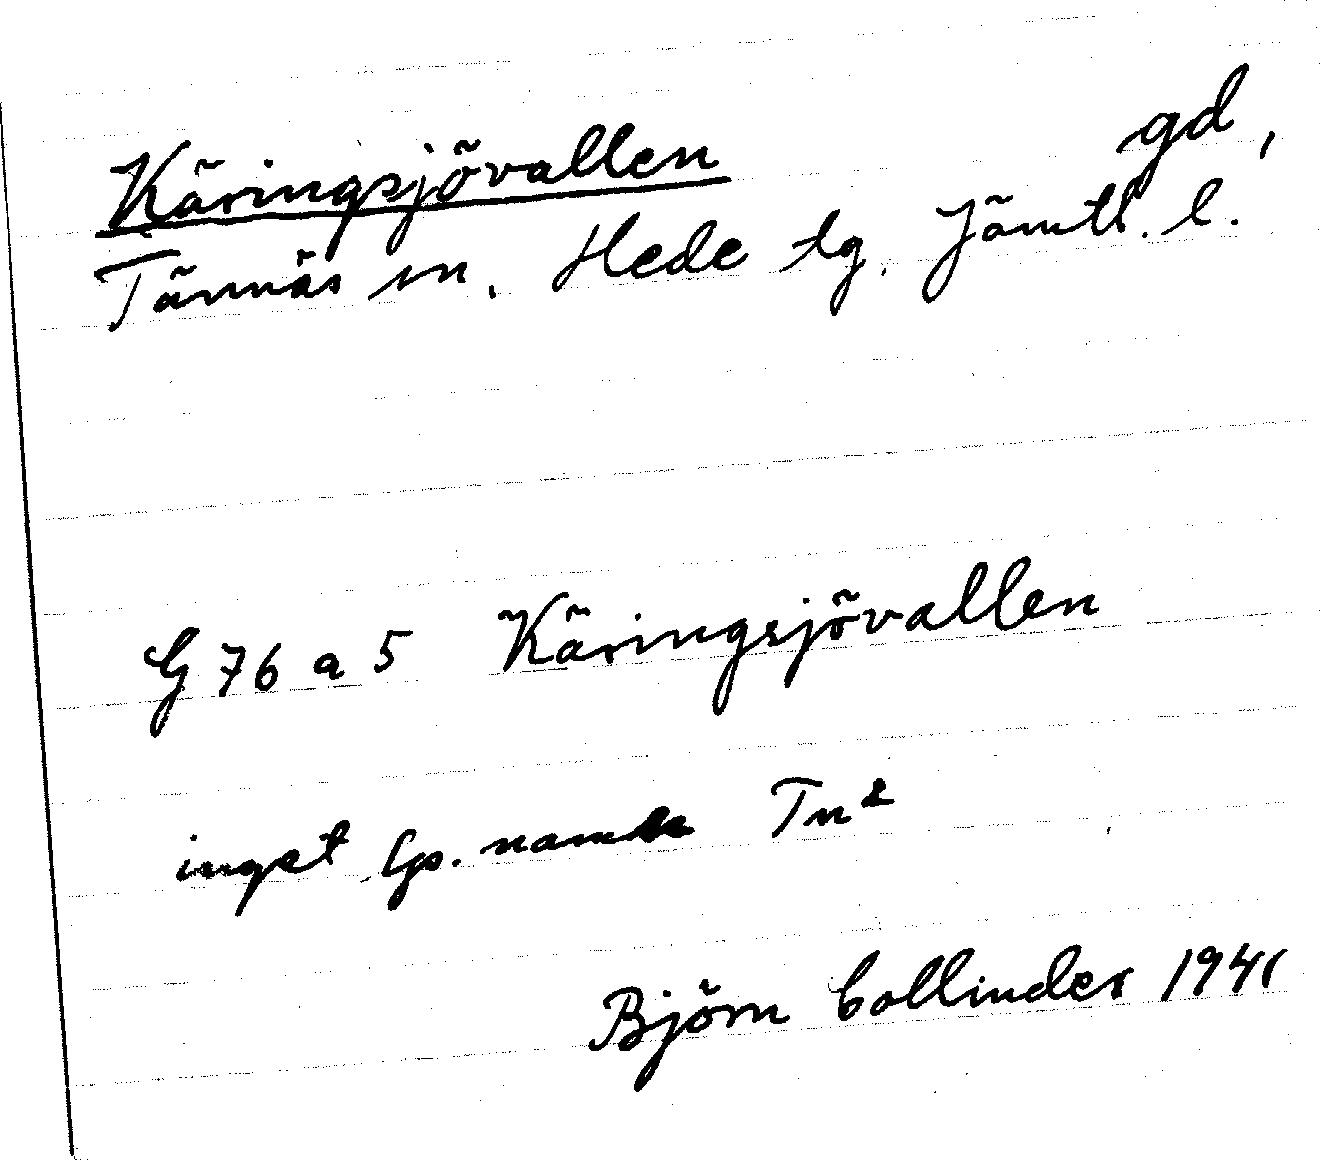 Käringsjövallen gd,
Tännäs sn. Hede tg. Jämtl. l.
G 76 a 5 Käringsjövallen
inget lp. namn Tn²
Björn Collinder 1941